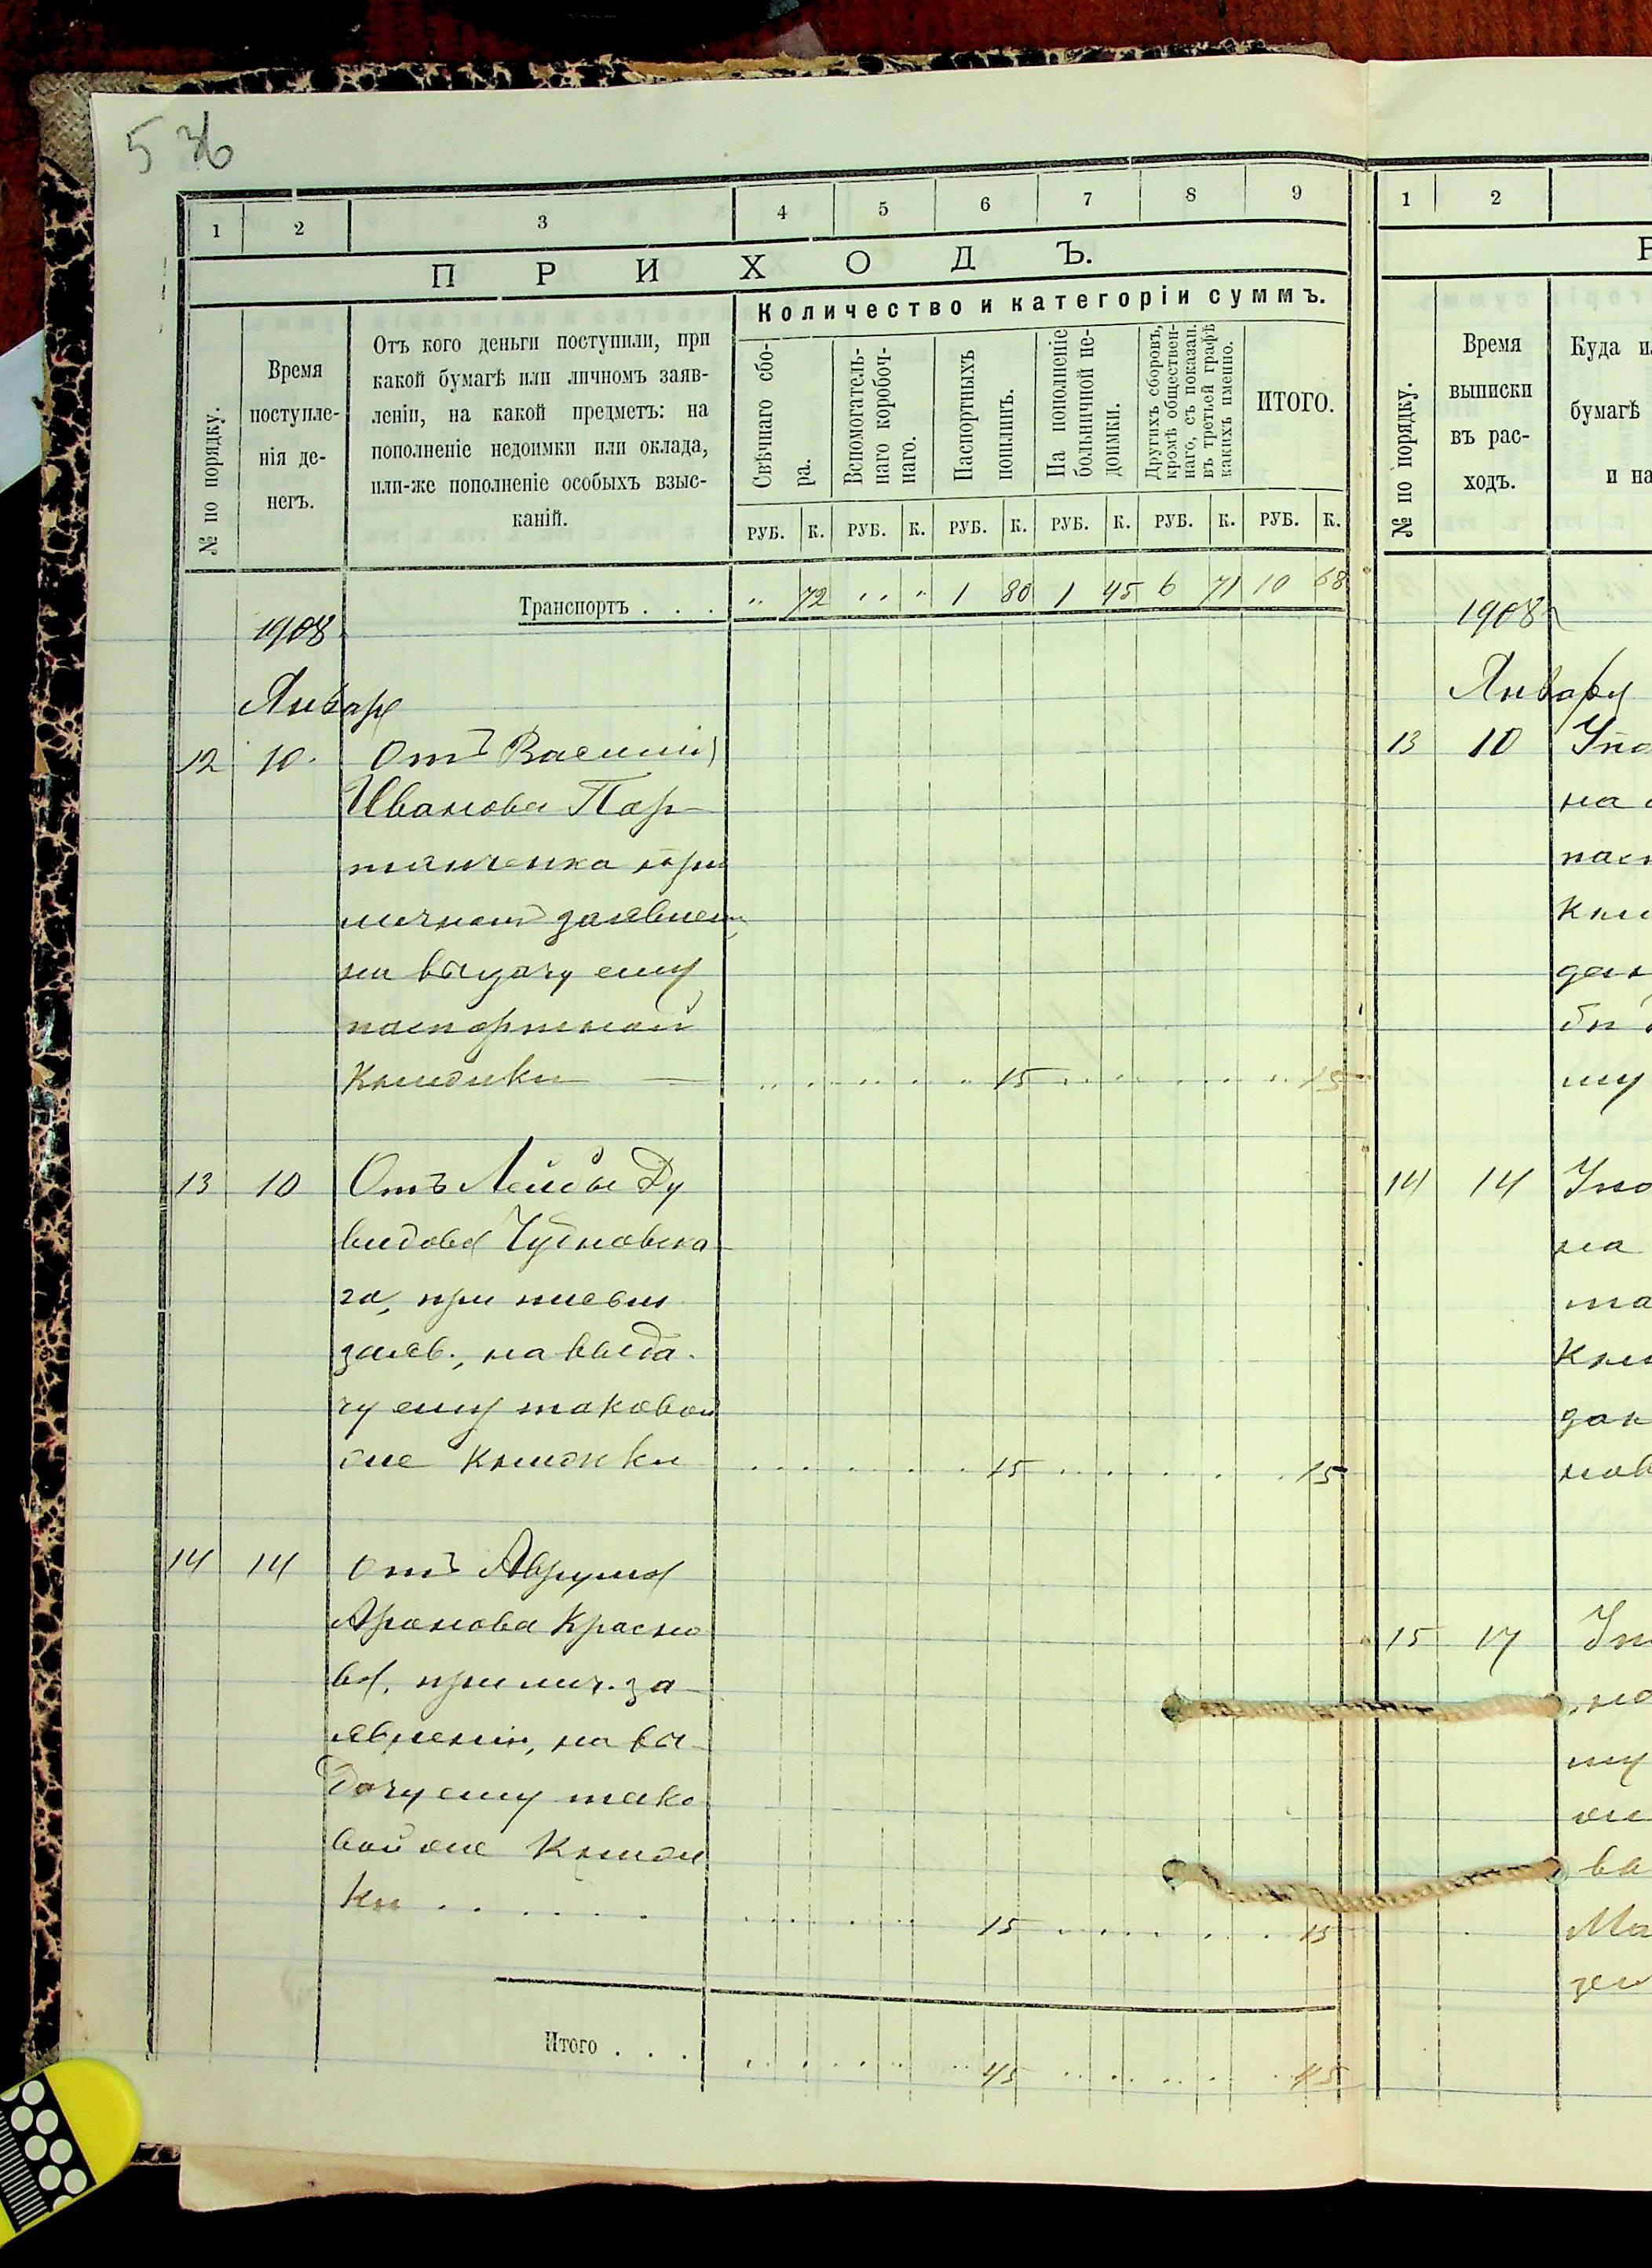 5 36
1 2 3 4 5 6 7 8 9
ПРИХОДЪ.
Количество и категоріи суммъ.
№ по порядку.
Время
поступле-
нія де-
негъ.
Отъ кого деньги поступили, при
какой бумагѣ или личномъ заяв-
леніи, на какой предметъ: на
пополненіе недоимки или оклада,
или-же пополненіе особыхъ взыс-
каній.
Свѣчнаго сбо-
ра.
Вспомогатель-
наго коробоч-
наго.
Паспортныхъ
пошлинъ.
На пополненіе
больничной не-
доимки.
Другихъ сборовъ,
кромѣ обществен-
наго, съ показан.
въ третьей графѣ
какихъ именно.
ИТОГО.
РУБ. К. РУБ. К. РУБ. К. РУБ. К. РУБ. К. РУБ. К.
Транспортъ . . . „ 72 „ „ 1 80 1 45 6 71 10 68
1908
Январ
12 10. Отъ Василія
Иванова Пар-
танченка при
личномъ заявлен.
на выдачу ему
паспортной
книжки — 15 15
13 10 Отъ Лейбы Ду
видова Чудновска-
го, при
заяв., на выда-
чу ему таковой
же книжки 15 15
14 14 Отъ Аврума
Аронова Красно
ва, при лич. за-
явленіи, на вы-
дачу ему тако
вой же книж
ки . . . . . . 15 15
Итого . . . 45 45
1 2
Р
№ по порядку.
Время
выписки
въ рас-
ходъ.
Куда и
бумагѣ
и на
1908
Января
13 10 Упо
на
пасп
кни
дан
му
14 14 Упо
на
та
кни
дан
нов
15 17
на
му
ва
Ма